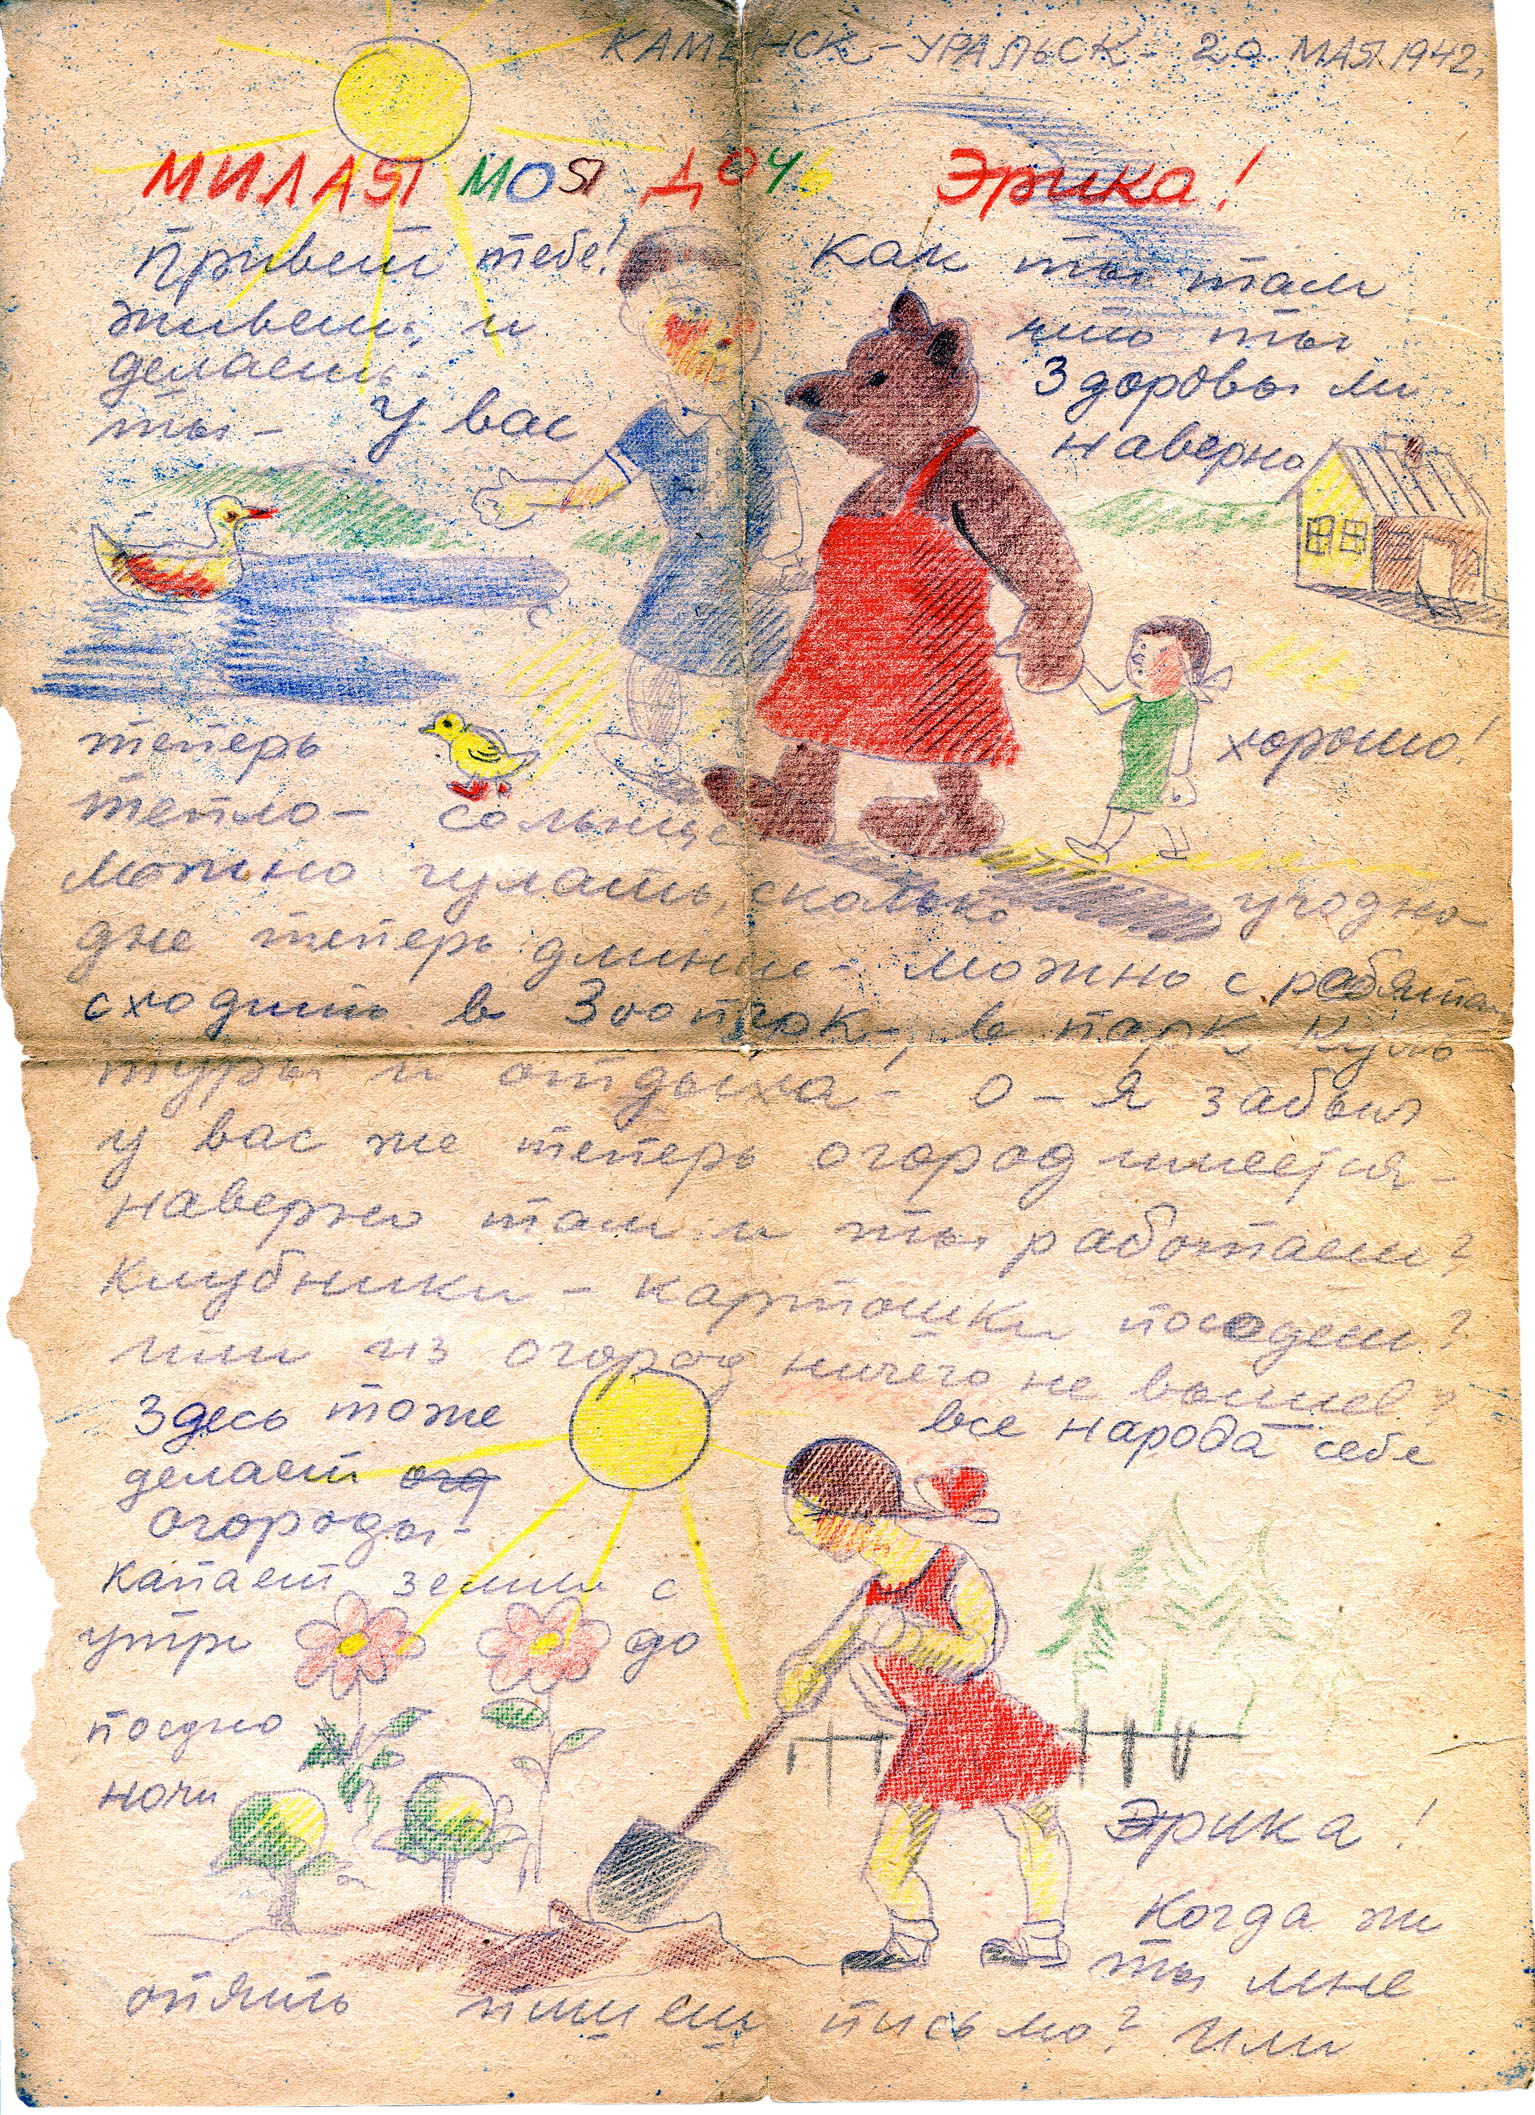 КАМЕНСК-УРАЛЬСК- 20 МАЯ 1942.
МИЛАЯ МОЯ ДОЧЬ Эрика!
Привет тебе! Как ты там
живеш, и что ты
делаеш- здоровы ли
ты- У вас наверно
теперь хорошо!
тепло- солнце
можно гулять, сколько угодно
дне теперь длинше- можно с рабятам
сходить в Зоопрок-, в парк куль-
туры и отдыха- О-Я забыл
у вас же теперь огород имеется-
наверно там и ты работаеш?
Клубники- картошки посадеш?
или из огород ничего не вышев?
Здесь тоже все народа себе
делает огд
огороды-
капает земли с
утри до
поздно
ночи
Эрика!
Когда же
ты мне
опять пишеш письмо? Или